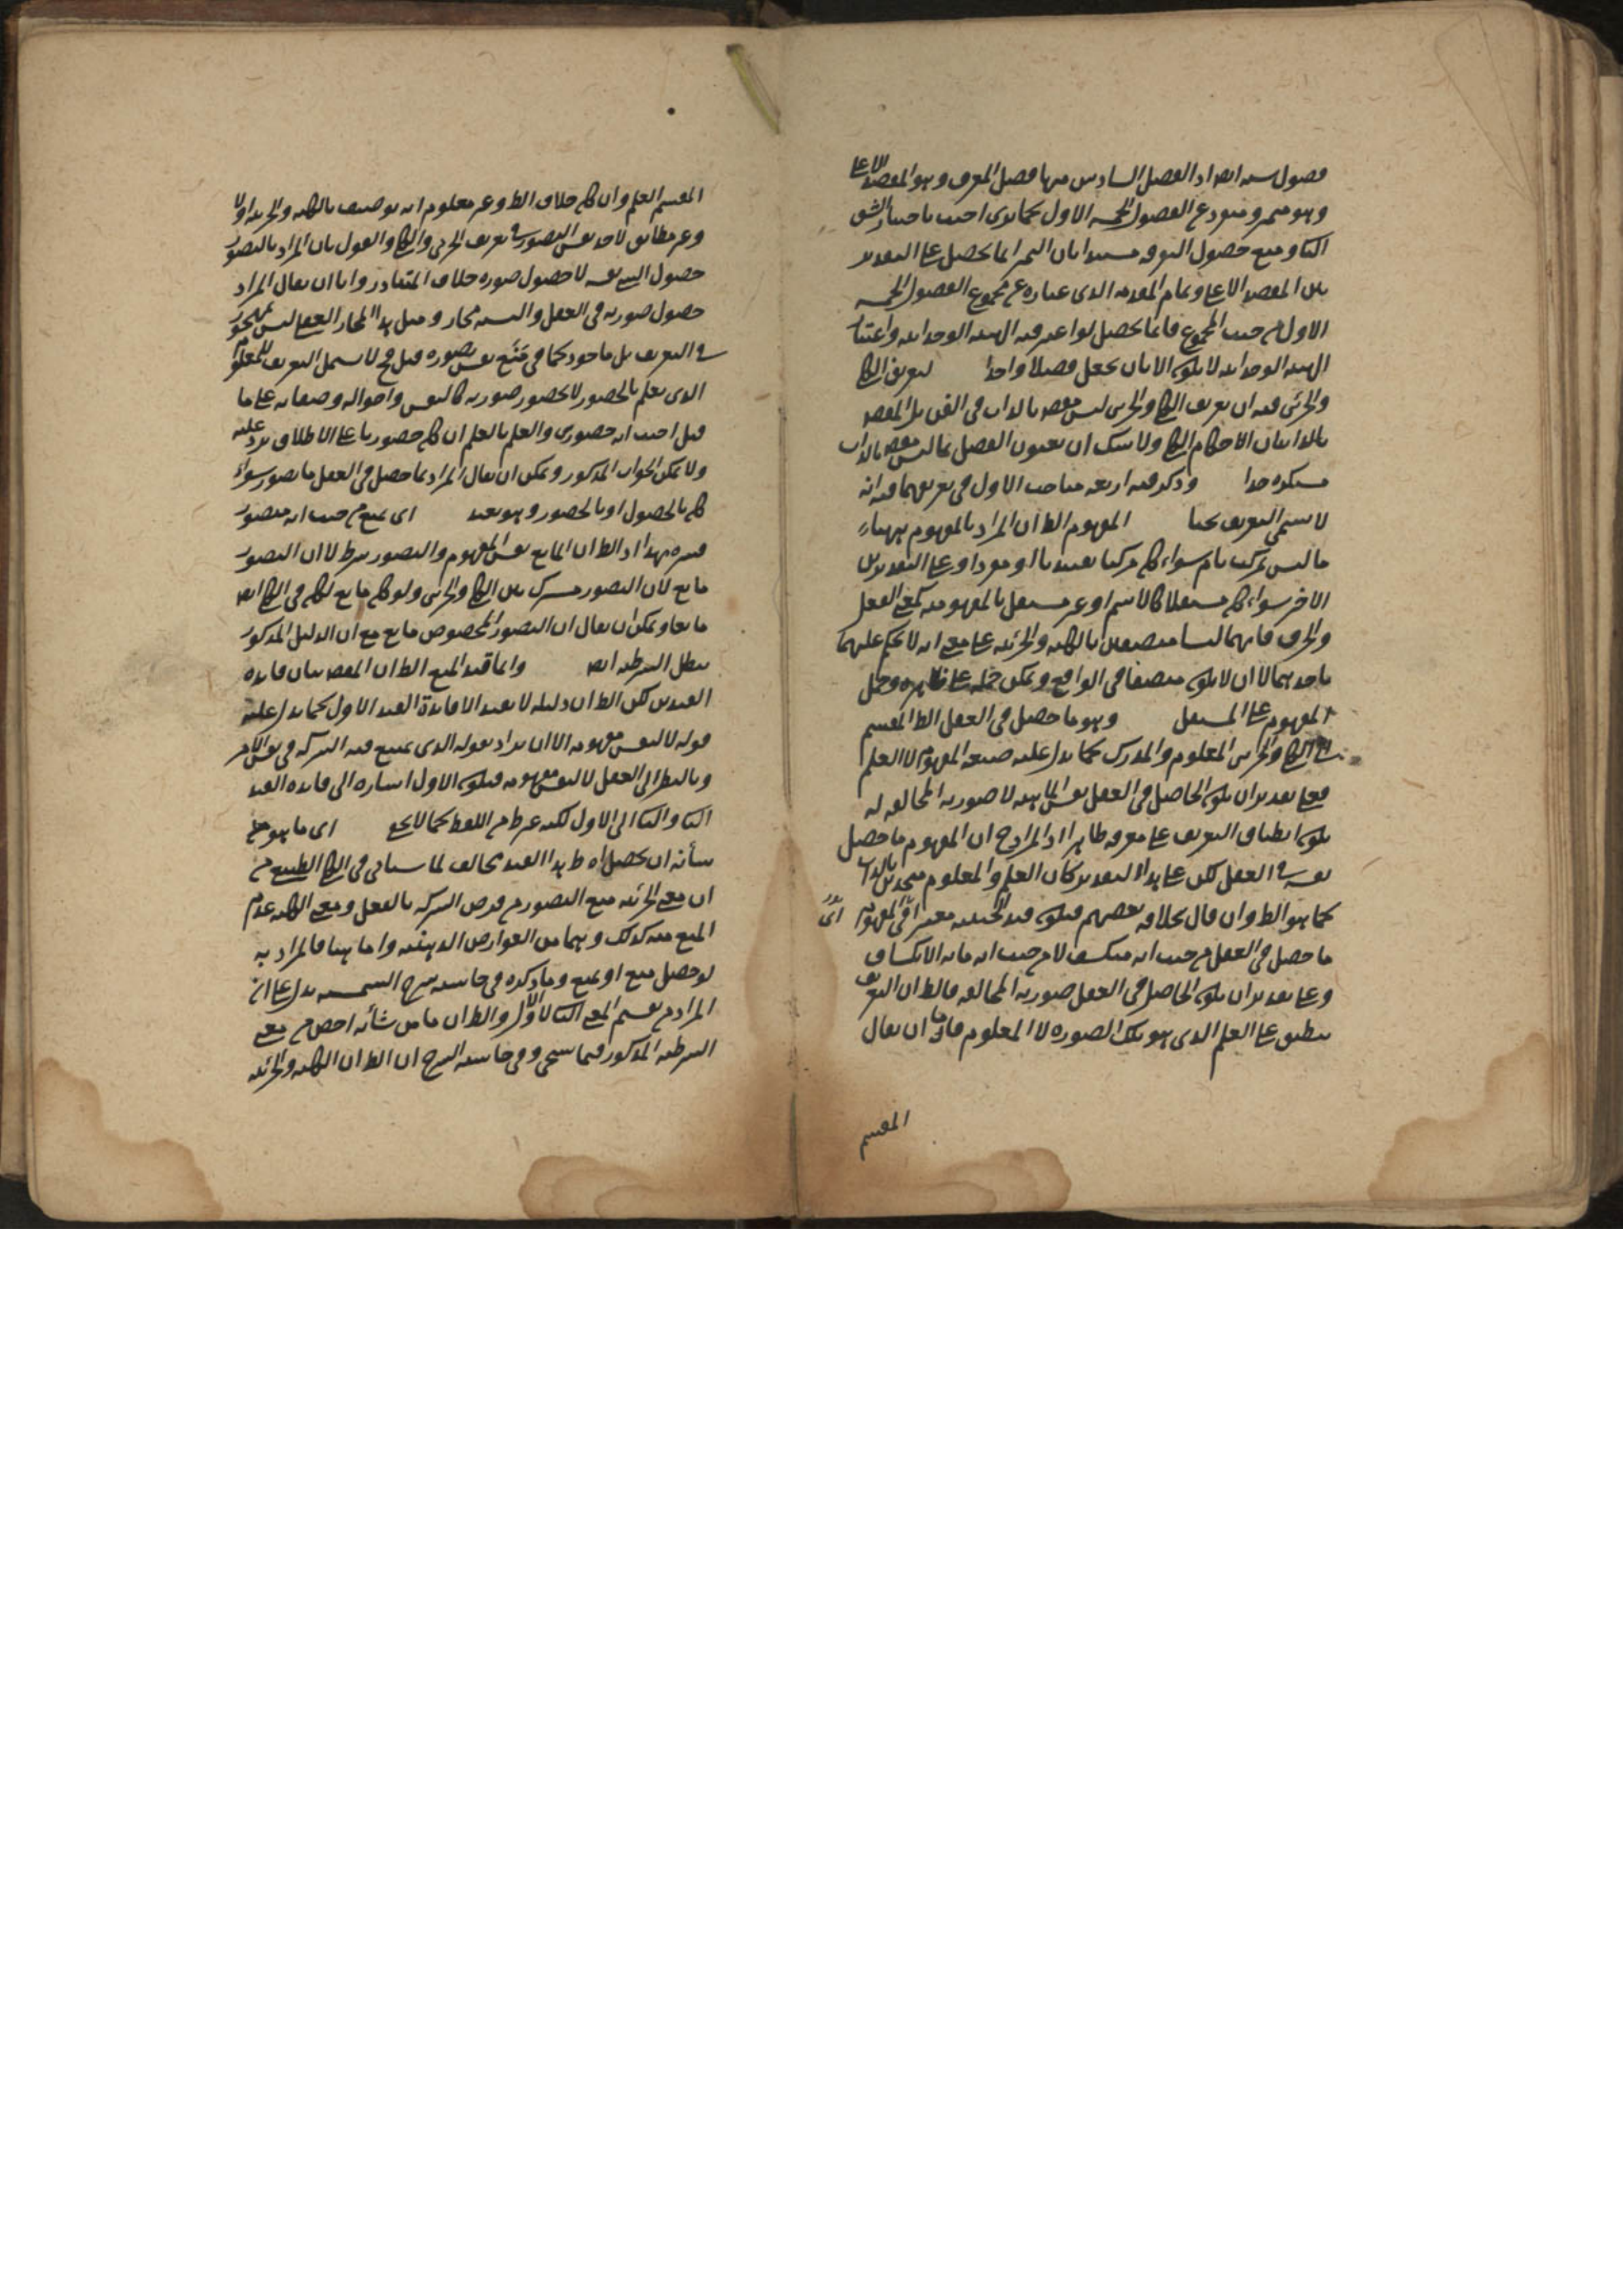 فصول سته ايضا اذ الفصل السادس منها فصل المعرف وهو المقصد الاعلى
وهو ثمر ومتفرع الفصول الخمسة الاول كما ترى اجيب باختيار الشق
الثاني ومنع حصول التوقف مستندا بان الثمر انما يحصل على التقدير
بين المقصد الاعلى وتمام المقدمة الذي عبارة عن مجموع الفصول الخمسة
الاول من حيث المجموع فانما يحصل لو اعتبر فيه الهيئة الوحدانية واعتبار
الهيئة الوحدانية لا يكون الا بان يجعل فصلا واحدا لتعريف الكلي
والجزئي فيه ان تعريف الكلي والجزئي ليس مقصد بالذات في الفن بل المقصد
بالذات بيان الاحكام الكلي ولا شك ان يعنون الفصل بما ليس مقصد بالذات
مستكره جدا وذكر فيه اربعة مباحث الاول في تعريفهما فيه انه
لا يسمى التعريف بحثا المفهوم الظ ان المراد بالمفهوم ههنا
ما ليس بمركب تام سواء كان مركبا تقييديا او مفردا وعلى التقديرين
الاخر سواء كان مستقلا كالاسم او غير مستقل بالمفهومية كمعنى الفعل
والحرف فانهما ليسا متصفين بالكلية والجزئية على معنى انه لا يحكم عليهما
باحديهما لا ان لا يكون متصفا في الواقع ويمكن حمله على ظاهره وحمل
المفهوم على المستقل وهو ما حصل في العقل الظ المقسم
الى الكلي والجزئي المعلوم والمدرك كما يدل عليه صيغة المفهوم لا العلم
فعلى تقدير ان يكون الحاصل في العقل نفس الماهية لا صورته المخالفة له
يكون انطباق التعريف على معرفه ظاهرا اذ المراد ح ان المفهوم ما حصل
نفسه في العقل لكن على هذا التقدير كان العلم والمعلوم متحدين بالذات
كما هو الظ وان قال بخلافه بعضهم فيكون قيد الحيثية معتبرا في المفهوم اى
ما حصل في العقل من حيث انه منكشف لا من حيث انه ما به الانكشاف
وعلى تقدير ان يكون الحاصل في العقل صورته المخالفة فالظ ان التعريف
ينطبق على العلم الذي هو تلك الصورة لا المعلوم فاما ان يقال
المقسم
المقسم العلم وان كان خلاف الظ وغير معلوم انه يوصف بالكلية والجزئية اولا
وغير مطابق لاخذ نفس التصور في تعريف الجزئي والكلي والقول بان المراد بالتصور
حصول الشئ نفسه لا حصول صورة خلاف المتبادر واما ان يقال المراد
حصول صورته في العقل والنسبة مجاز ومثل هذا المجاز العقلي ليس بمهجور
في التعريف بل ماخوذ كما في منع نفس تصوره قيل ح لا يشمل التعريف للمعلوم
الذي يعلم بالحضور لا بحضور صورته كالنفس واحواله وصفاته على ما
قيل اجيب انه حضوري والعلم بالعلم ان كان حضوريا على الاطلاق يرد عليه
ولا يمكن الجواب المذكور ويمكن ان يقال المراد بما حصل في العقل ما يتصور سواء
كان بالحصول او بالحضور وهو بعيد اى يمنع من حيث انه متصور
فسره بهذا اذ الظ ان المانع نفس المفهوم والتصور شرط لا ان التصور
مانع لان التصور مشترك بين الكلي والجزئي ولو كان مانع لكان في الكلي ايضا
مانعا ويمكن ان يقال ان التصور المخصوص مانع مع ان الدليل المذكور
يبطل الشرطية ايضا وانما قيد المنع الظ ان المقصد بيان فائدة
القيدين لكن الظ ان دليله لا يفيد الا فائدة القيد الاول كما يدل عليه
قوله لا لنفس مفهومه الا ان يراد بقوله الذي يمتنع فيه الشركة في نفس الامر
وبالنظر الى العقل لا لنفس مفهومه فيكون الاول اشارة الى فائدة القيد
الثاني والثاني الى الاول لكنه غير ظ من اللفظ كما لا يخفى اى ما هو من
شأنه ان يحصل اه ظ هذا القيد يخالف لما سياتي في الكلي الطبيعي من
ان معنى الجزئية منع التصور من فرض الشركة بالفعل ومعنى الكلية عدم
المنع منه كذلك وهما من العوارض الذهنية واما ههنا فالمراد به
لو حصل منع او يمنع وما ذكره في حاشية شرح الشمسية يدل على ان
المراد من تقسيم المعنى الثاني لا الاول والظ ان ما من شأنه اخص من معنى
الشرطية المذكور فيما سيجئ وفي حاشية الشرح ان الظ ان الكلية والجزئية